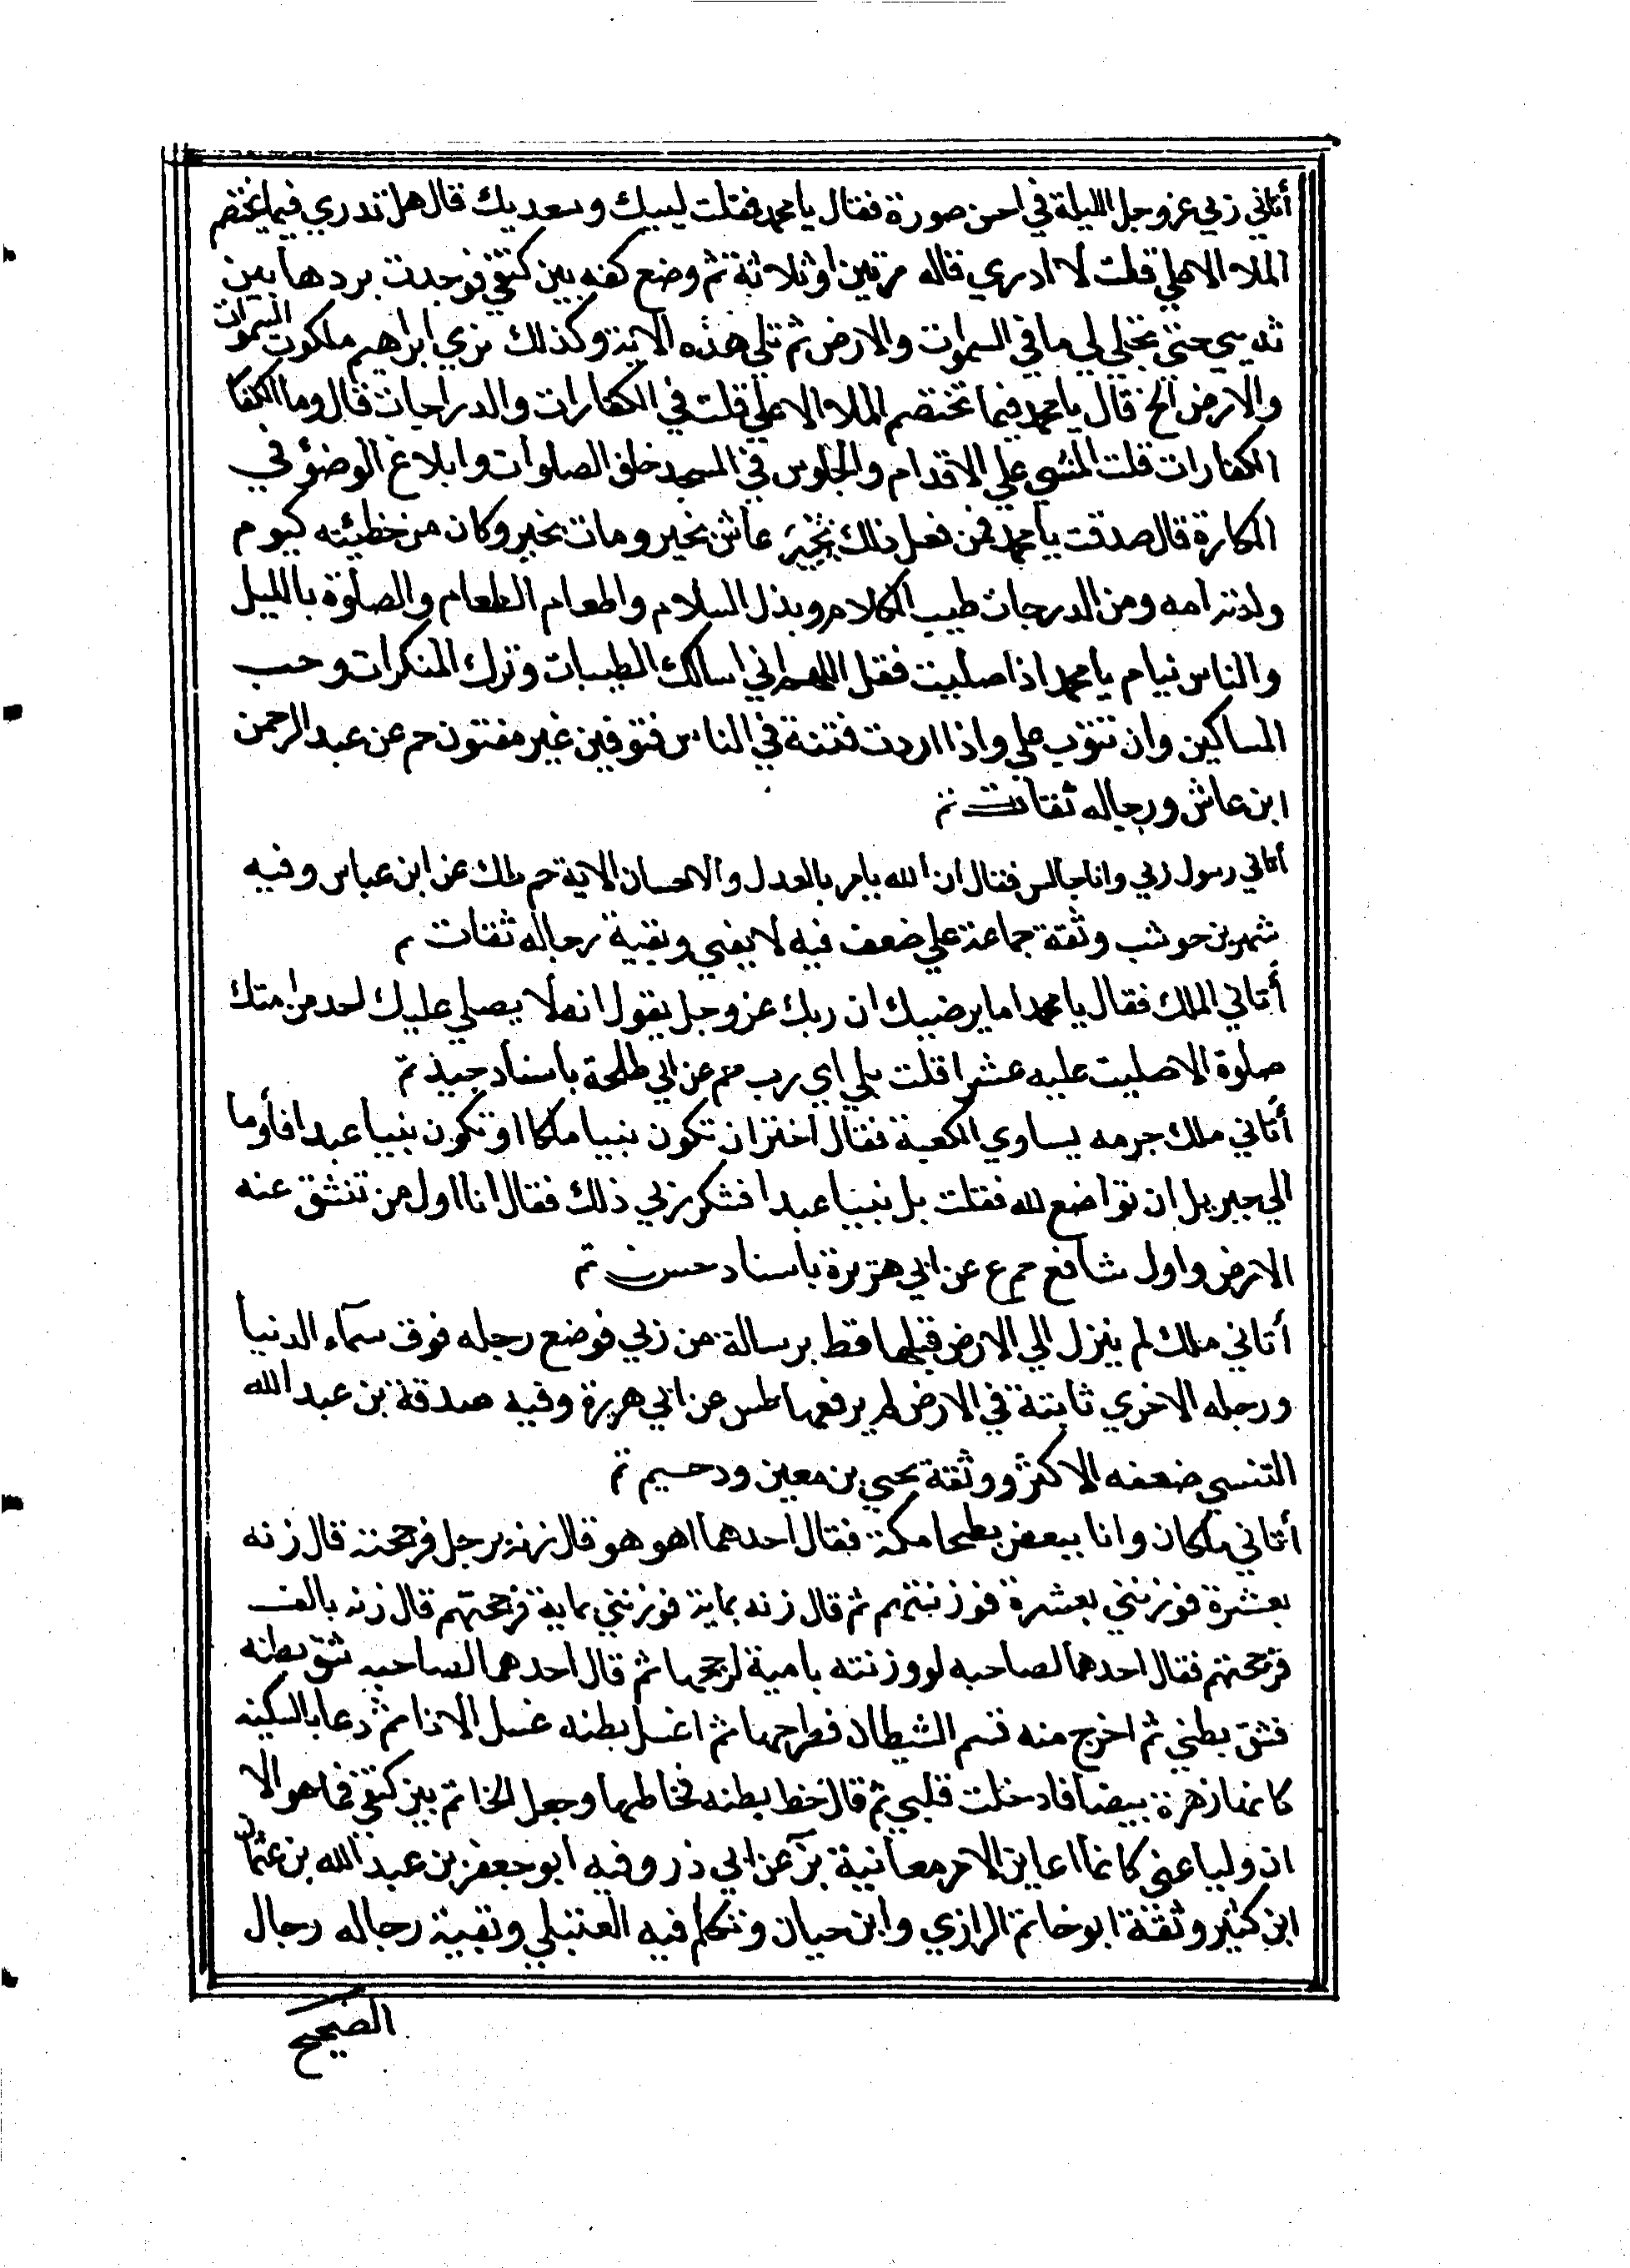 أتاني ربي عزوجل الليلة في احسن صورة فقال يا محمد فقلت لبيك وسعديك قال هل تدري فيما يختصم
الملا الاعلي قلت لا ادري قاله مرتين او ثلاثة ثم وضع كفه بين كتفي فوجدت بردها بين
ثديي حتي تجلي لي ما في السموات والارض ثم تلي هذه الاية وكذلك نري ابراهيم ملكوت السموات
والارض الخ قال يا محمد فيما تختصم الملا الاعلي قلت في الكفارات والدراجات قال وما الكفا
الكفارات قلت المشي علي الاقدام والجلوس في المسجد خلف الصلوات وابلاغ الوضؤ في
المكارة قال صدقت يا محمد فمن فعل ذلك بخير عاش بخير ومات بخير وكان من خطيئته كيوم
ولدته امه ومن الدرجات طيب الكلام وبذل السلام واطعام الطعام والصلوة بالليل
والناس نيام يا محمد اذا صليت فقل اللهم اني اسالك الطيبات وترك المنكرات وحب
المساكين وان تتوب علي واذا اردت فتنة في الناس فتوفين غير مفتون حم عن عبد الرحمن
ابن عاش ورجاله ثقات تم
أتاني رسول ربي وانا جالس فقال ان الله يامر بالعدل والاحسان الاية حم طك عن ابن عباس وفيه
شهر بن حوشب وثقة جماعة علي ضعف فيه لا يضي وبقية رجاله ثقات م
أتاني الملك فقال يا محمد اما يرضيك ان ربك عزوجل يقول انه لا يصلي عليك احد من امتك
صلوة الا صليت عليه عشرا قلت بلي اي رب حم عن ابي طلحة باسناد جيد تم
أتاني ملك جرمه يساوي الكعبة فقال اختر ان تكون نبيا ملكا او تكون نبيا عبدا فأوما
الي جبريل ان تواضع لله فقلت بل نبيا عبدا فشكر ربي ذلك فقال انا اول من تنشق عنه
الارض واول شافع حم ع عن ابي هريرة باسناد حسن تم
أتاني ملك لم ينزل الي الارض قبلها قط برسالة من ربي فوضع رجله فوق سماء الدنيا
ورجله الاخري ثابتة في الارض لم يرفعها طس عن ابي هريرة وفيه صدقة بن عبد الله
التنسي ضعفه الاكثر ووثقة يحيي بن معين ودحيم تم
أتاني ملكان وانا ببعض بطحا مكة فقال احدهما اهو هو قال زنه برجل فرجحته قال زنه
بعشرة فوزنني بعشرة فوزنتهم ثم قال زنه بماية فوزنني بماية فرجحتهم قال زنه بالف
فرجحتهم فقال احدهما لصاحبه لو وزنته بامية لرجحها ثم قال احدهما لصاحبه شق بطنه
فشق بطني ثم اخرج منه قسم الشيطان فطرحها ثم اغسل بطنه غسل الانا ثم دعا بالسكينه
كانها زهرة بيضا فادخلت قلبي ثم قال خط بطنه فخاطها وجعل الخاتم بين كتفي فما هو الا
ان وليا عني كانما اعاين الامر معاينة بز عن ابي ذر وفيه ابو جعفر بن عبد الله بن عثمان
ابن كثير وثقة ابو حاتم الرازي وابن حيان وتكلم فيه العتبلي وبقية رجاله رجال
الصحيح